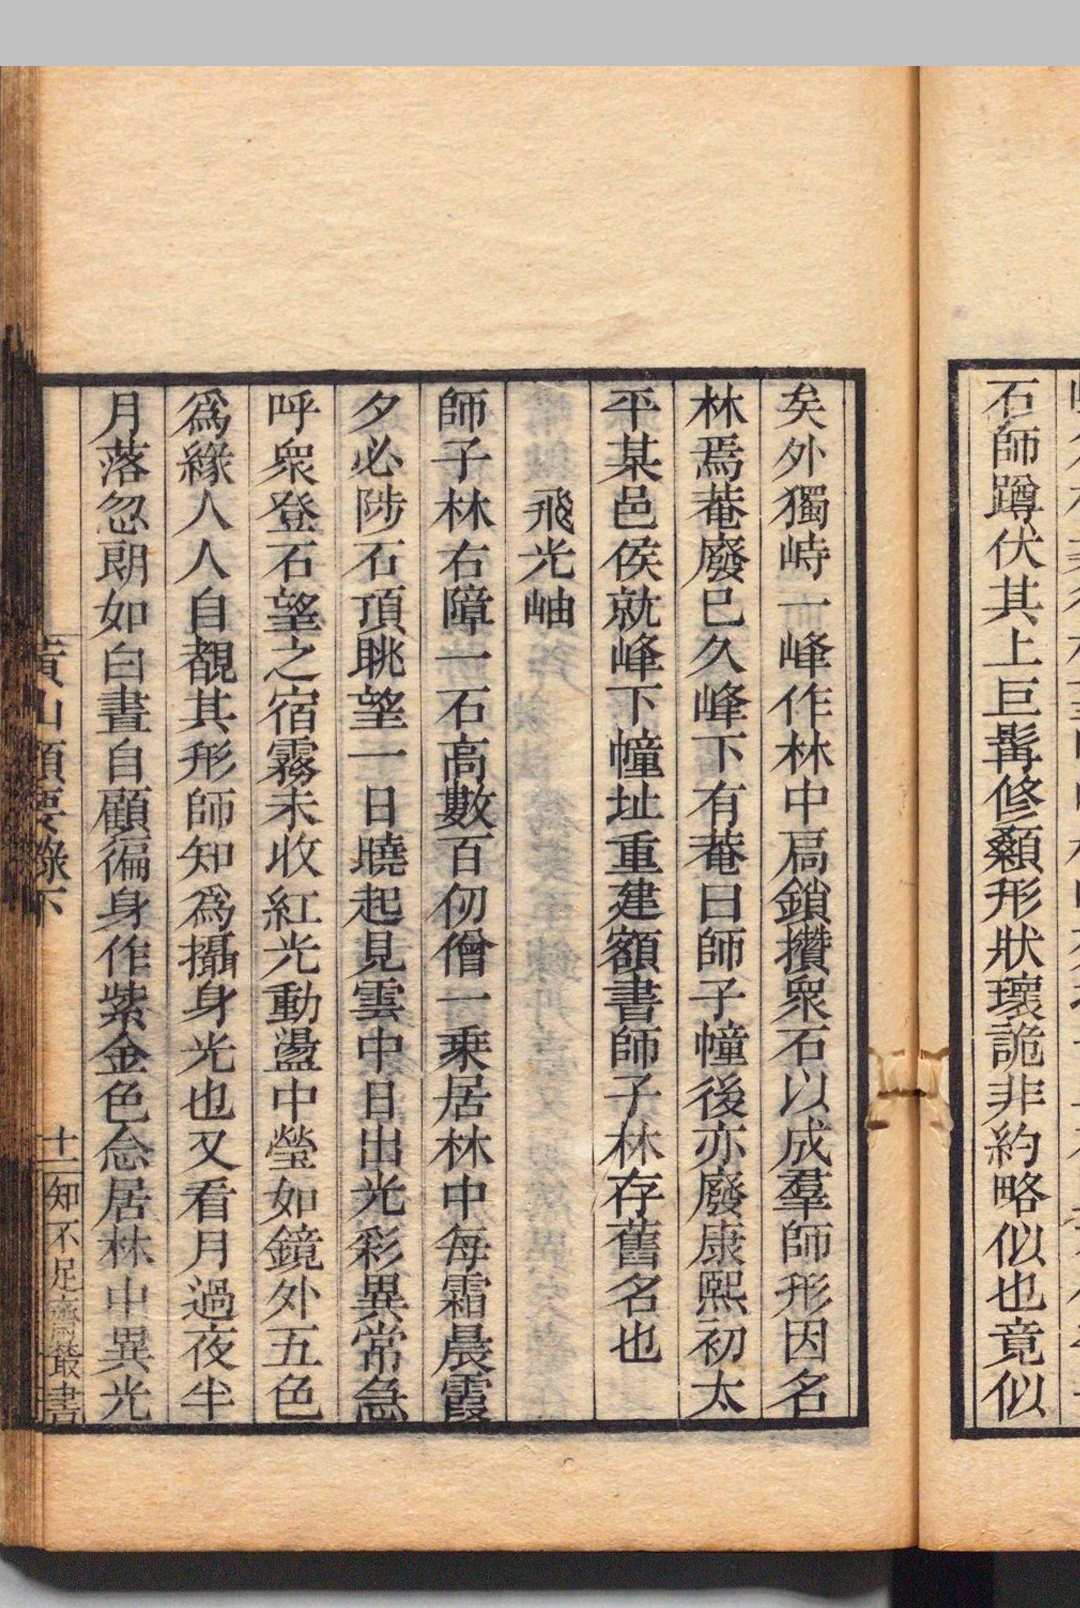 石師蹲伏其上巨髯修顙形狀瓌詭非約略似也竟似
矣外獨峙一峰作林中扃鎖攢衆石以成羣師形因名
林焉菴廢已久峰下有菴曰師子幢後亦廢康熙初太
平某邑侯就峰下幢址重建額書師子林存舊名也
飛光岫
師子林右障一石高數百仞僧一乗居林中每霜晨霞
夕必陟石頂眺望一日曉起見雲中日出光彩異常急
呼衆登石望之宿霧未收紅光動盪中瑩如鏡外五色
爲緣人人自覩其形師知爲攝身光也又看月過夜半
月落忽朗如白晝自顧徧身作紫金色念居林中異光
黃山領要錄下
十一知不足齋叢書